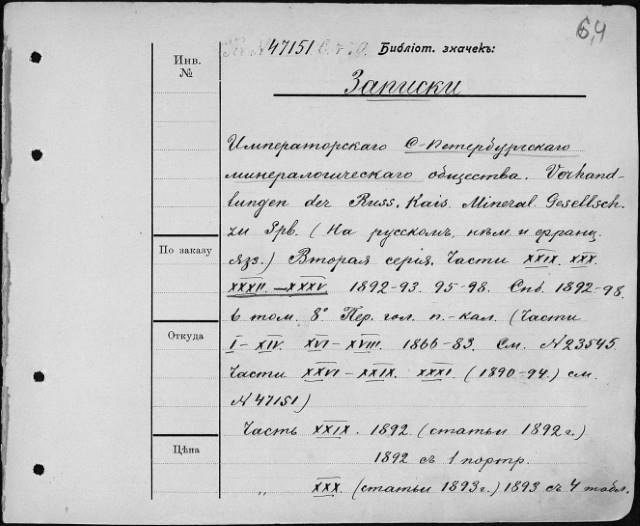 64
47151 Библіот. значекъ:
Инв.
№
Записки
Императорскаго С-Петербургскаго
минералогическаго общества. Verhand-
lungen der Russ. Kais. Mineral. Gesellsch.
zu Spb. (На русскомъ, нѣм. и франц.
яз.) Вторая серія. Части XXIX. XXX.
XXXII. – XXXV. 1892-93. 95-98. Спб. 1892-98.
6 том. 8° Пер. гол. п.-кал. (Части
I – XIV. XVI – XVIII. 1866-83. См. №23545
Части XXVI – XXIX. XXXI. (1890-94.) см.
№47151)
Часть XXIX. 1892 (статьи 1892 г.)
1892 съ 1 портр.
„ XXX. (статьи 1893 г.) 1893 съ 4 табл.
По заказу
Откуда
Цѣна